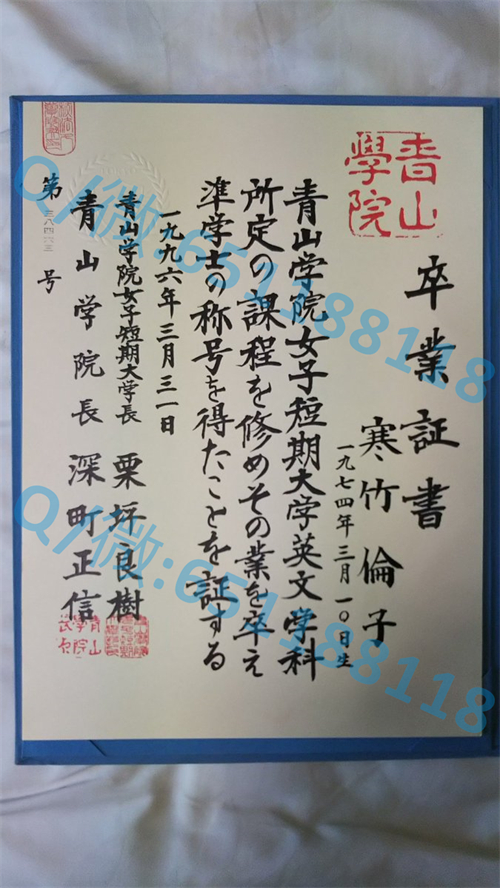 青山
學院
卒業証書
寒竹倫子
一九七四年三月一〇日生
青山学院女子短期大学英文学科
所定の課程を修めその業を卒え
準学士の称号を得たことを証する
一九九六年三月三一日
青山学院女子短期大学長 栗坪良樹
青山学院長 深町正信
第 号
Q/微:651188118
Q/微:651188118